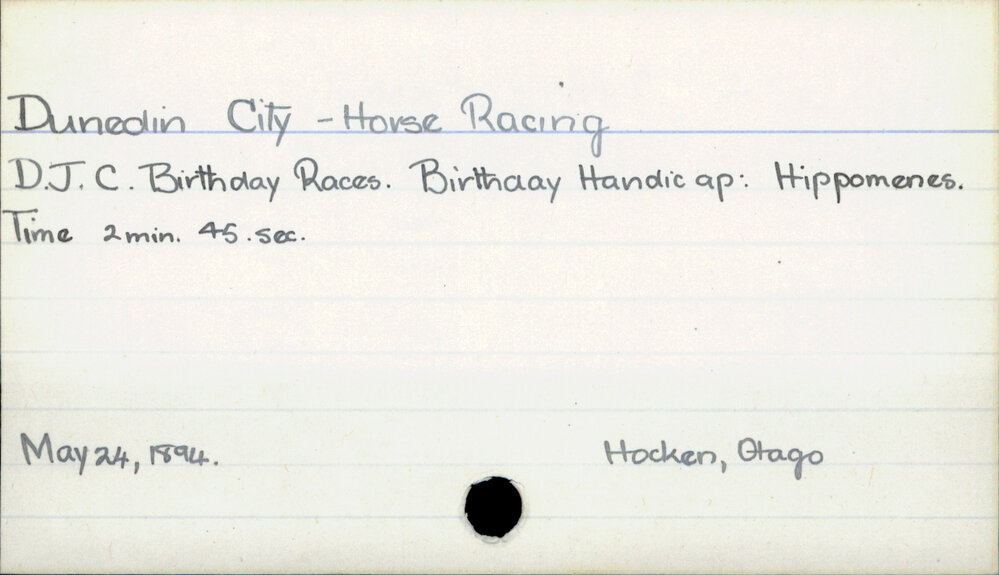 Dunedin City - Horse Racing
D.J.C. Birthday Races. Birthday Handicap: Hippomenes.
Time 2 min. 45. sec.
May 24, 1894. Hocken, Otago